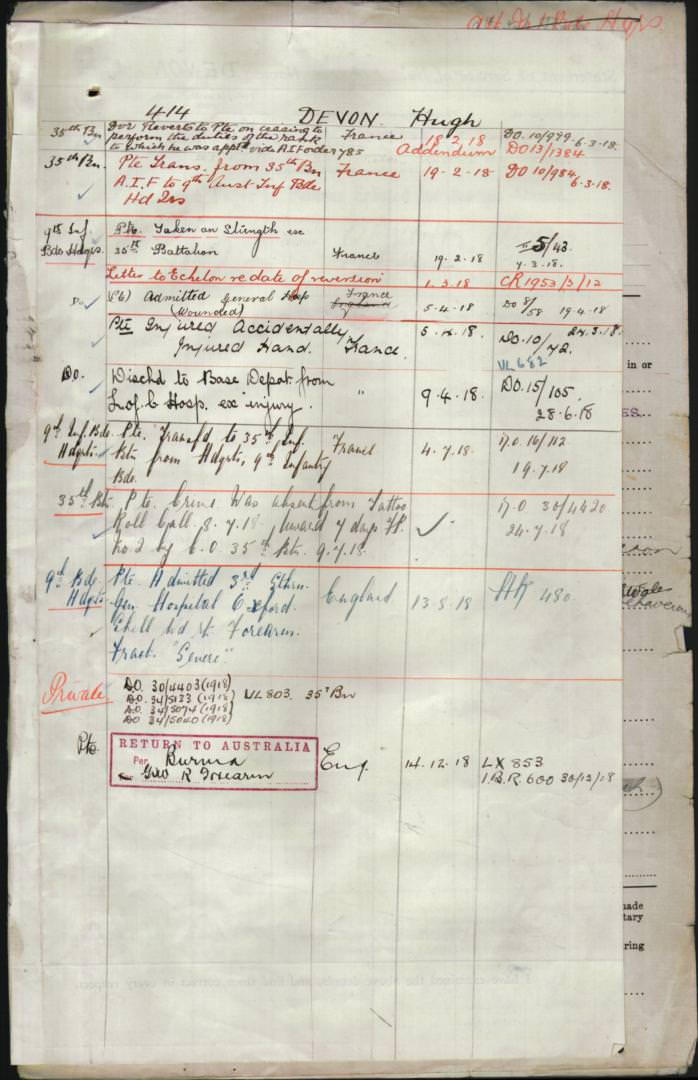 414 DEVON Hugh
35th Bn Dvr Reverts to Pte on ceasing to
perform the duties of the rank France 18 2 18 DO. 10/999 6-3-18.
to which he was appt vide A.I.F order 785 Addendum DO 13/1384
35th Bn. Pte Trans. from 35th Bn France 19-2-18 DO 10/984
A.I.F to 9th Aust Inf Bde 6-3-18.
Hd Qrs
9th Inf. Pte. Taken on Strength ex
Bde Hdqrs. 35th Battalion France 19.2.18 5/43
7.3.18.
Letter to Echelon re date of reversion 1.3.18 CR 1953/3/12
Do (Pte) Admitted General Hosp France 5-4-18 DO 8/58 19.4.18
(Wounded)
Pte Injured Accidentally 5.4.18. DO.10/72. 24.5.18.
Injured Hand. France.
VL 682
Do. Dischd to Base Depot from
L of C Hosp. ex injury. " 9-4-18. DO.15/105.
28-6-18
9th Inf. Bde. Pte. Transf'd to 35th Inf. France 4.7.18. D.O. 16/112
Hdqrts. Btn from Hdqrts, 9th Infantry 19.7.18
Bde.
35th Btn. Pte. Crime Was absent from Tattoo D.O 30/4420
Roll Call 8.7.18 Award 7 days F.P. 24.7.18
No 2 by C.O. 35th Btn. 9.7.18.
9th Bde. Pte. Admitted 3rd Sthrn. England 13.8.18 HK 480.
Hdqrts Gen. Hospital Oxford.
Shell Wd rt Forearm.
Fract. "Severe".
Private D.O. 30/4403 (1918)
D.O. 34/5133 (1918) VL 803. 35th Bn
D.O. 34/5074 (1918)
DO 34/5040 (1918)
Pte. RETURN TO AUSTRALIA
Per Burma Eng. 14.12.18 LX 853
for GSW R Forearm I.B.R. 600 30/12/18
in or
made
tary
ring